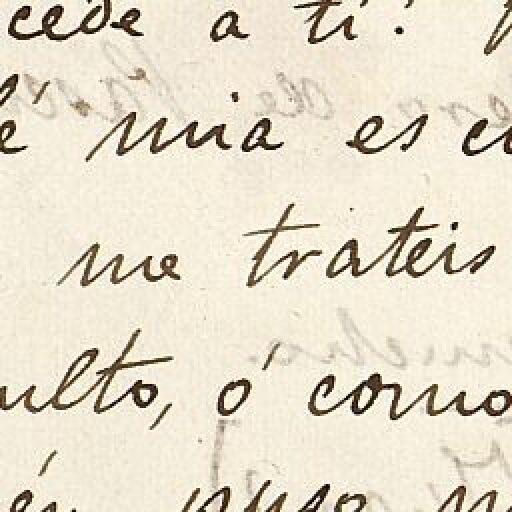 cede a ti!
é mia es c
me trateis
ulto, ó como
én puso